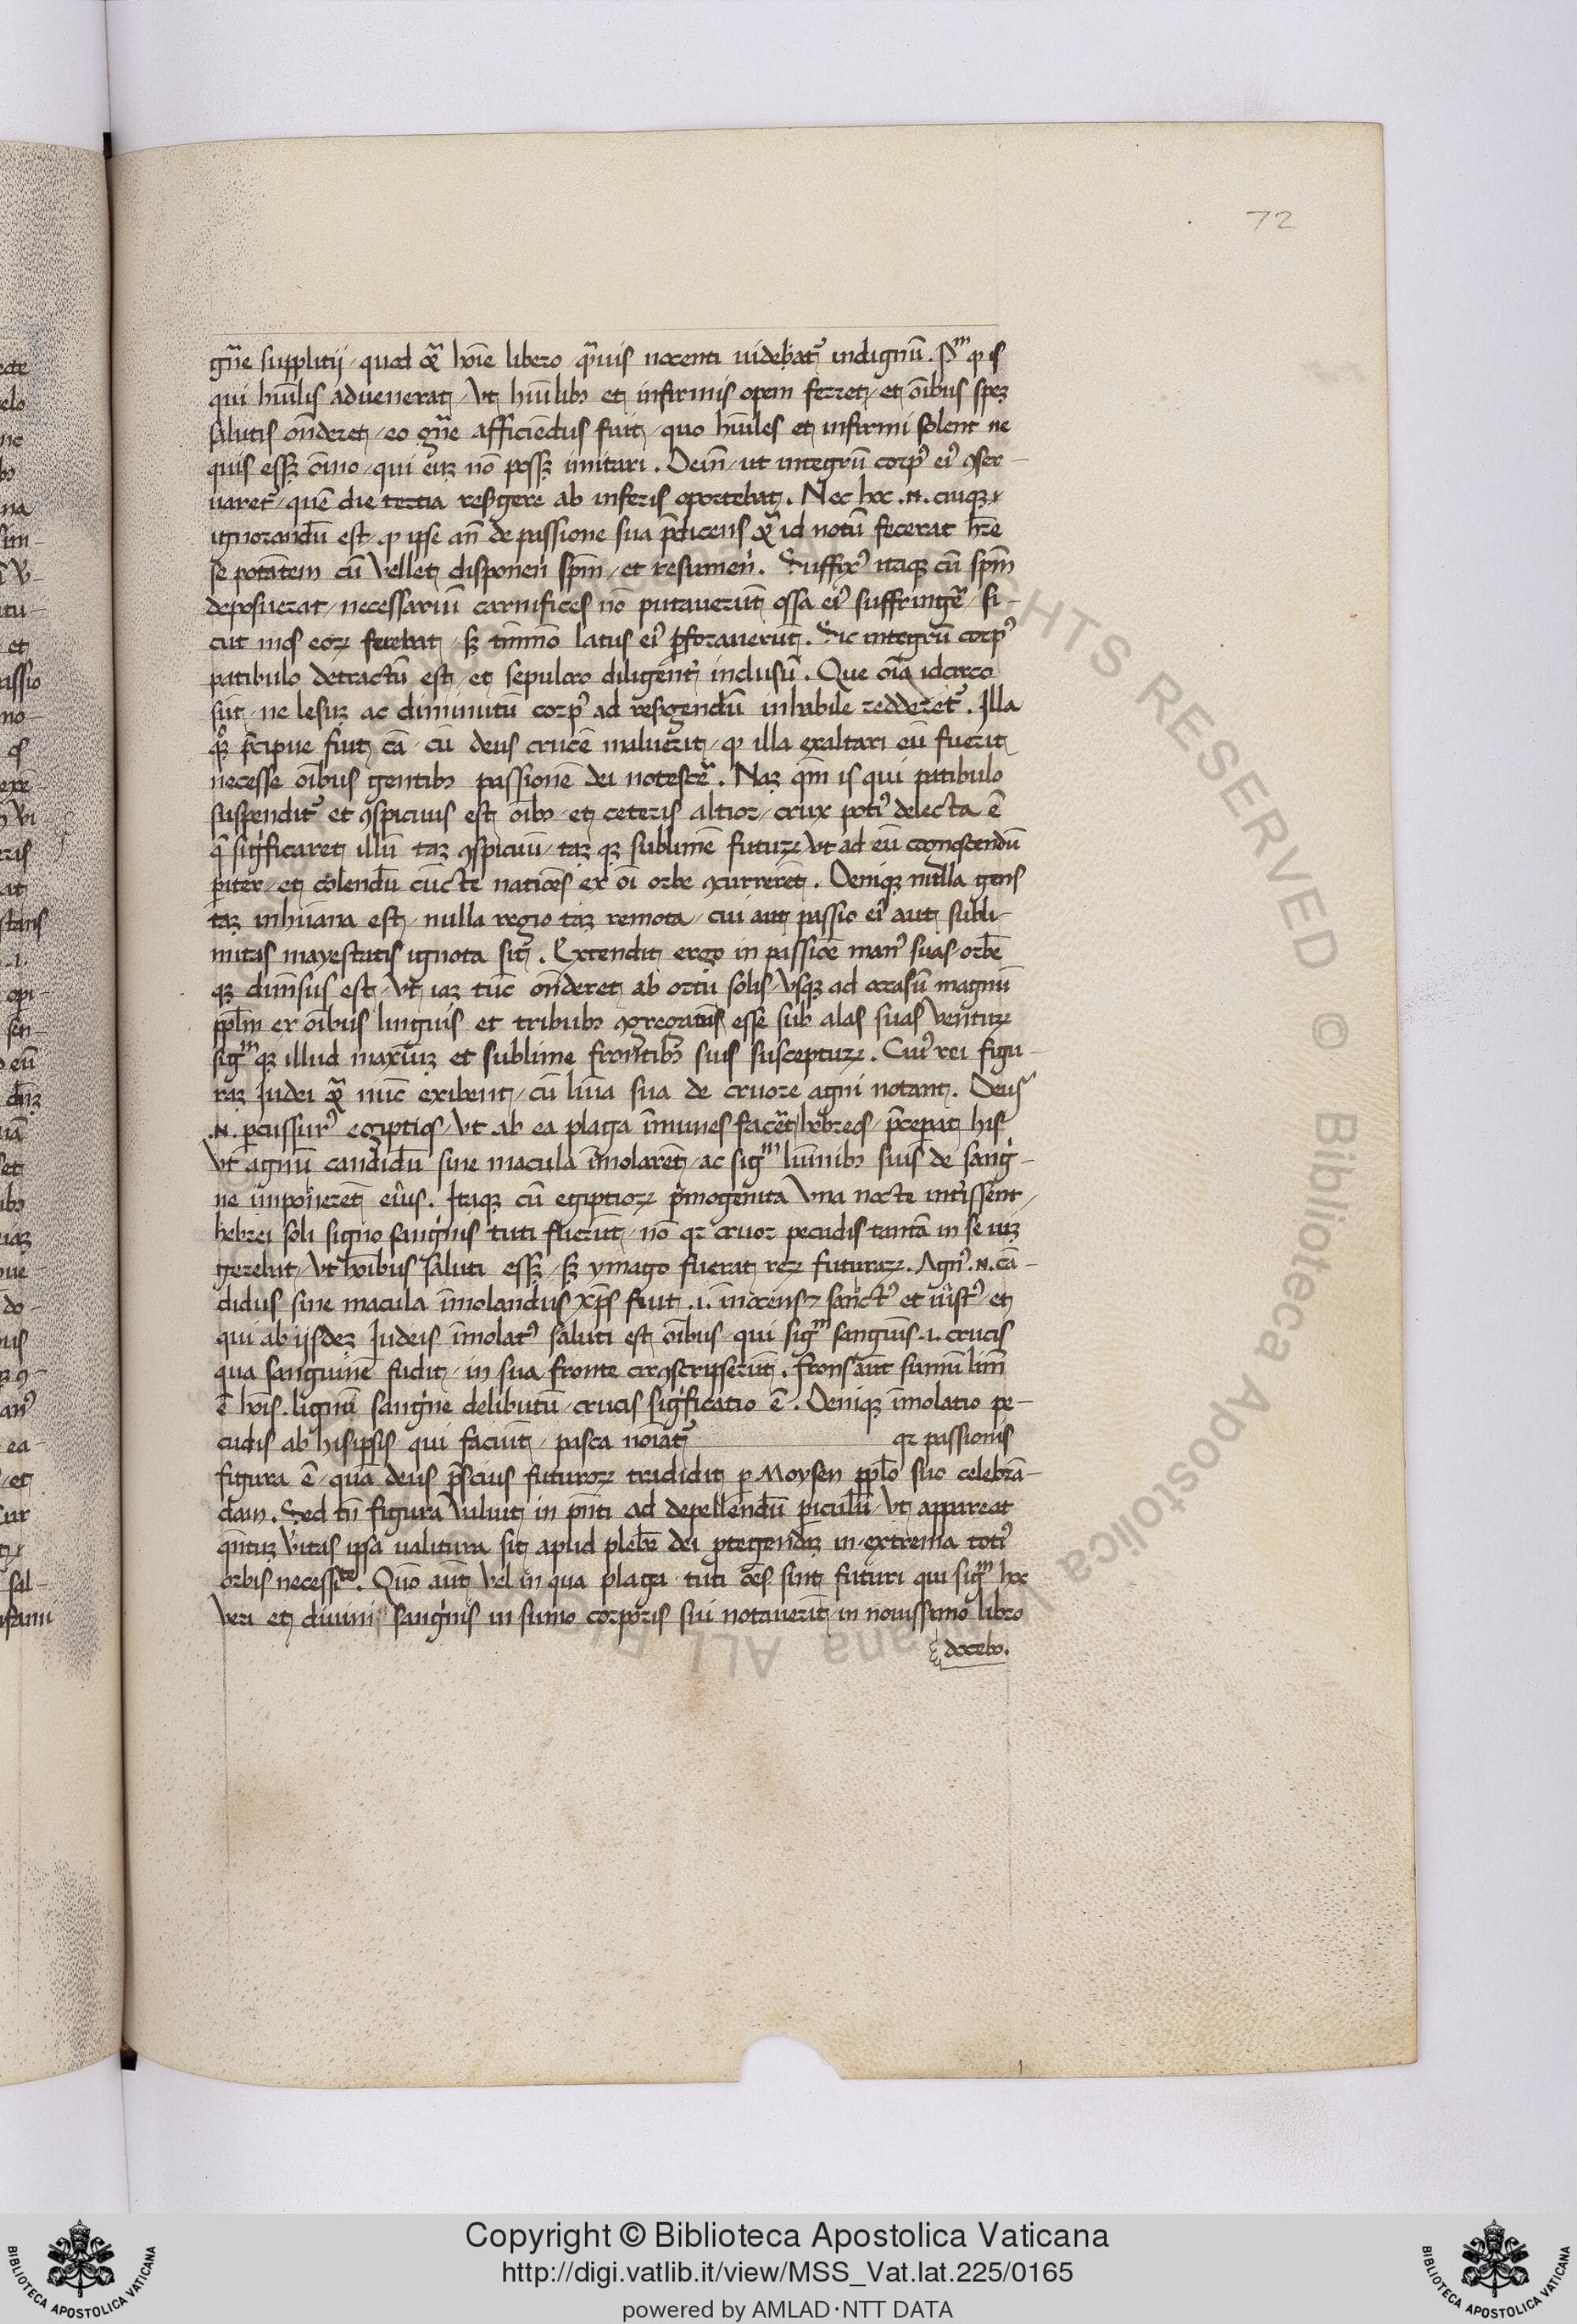 72
gn̄e supplitij / quod q̄a hōie libero q̄uis nocenti uidebat᷑ indignū. Pm̄ ꝙ is
qui hūilis aduenerat / Vt hūilibꝫ et infirmis opem ferret / et oībus speꝫ
salutis on̄deret / eo gn̄e afficiēdus fuit / quo hūiles et infirmi solent ne
quis essꝫ ōino / qui eūꝫ nō possꝫ imitari. Dein̄ / ut integrū corpꝰ eiꝰ ꝯser-
uaret᷑ / quē die tertia resurgere ab inferis oportebat. Nec hoc .n. cuiqꝫ
ignorandū est / ꝙ ipse an̄ de passione sua p̄dicens q̄a id notū fecerat hr̄e
se potātem cū vellet disponen̄i spm̄ / et resumen̄i. Suffixꝰ itaqꝫ cū spm̄
deposuerat / necessariū carnifices nō putauerūt ossa eiꝰ suffringe᷑ / si-
cut mos eoꝝ ferebat / sꝫ tn̄mō latus eiꝰ ꝑforauerūt. Sic integrū corpꝰ
patibulo detractū est / et sepulcro diligent᷑ inclusū. Que oīa idcirco
sūt / ne lesuꝫ ac diminutū corpꝰ ad resurgendū inhabile redderet᷑. Illa
quoqꝫ p̄cipue fuit cā / cū deus crucē maluerit / ꝙ illa exaltari eū fuerit
necesse oībus gentibꝫ passionē dei notesce᷑. Naꝫ qm̄ is qui patibulo
suspendit᷑ et ꝯspicuus est oībꝫ / et ceteris altior / crux potiꝰ delecta ē
q̄ sig̅ficaret illū taꝫ ꝯspicuū / taꝫ qꝫ sublimē futuꝝ vt ad eū cognoscendū
pariter / et colendū cūcte natiōes ex oī orbe ꝯcurrerēt. Deniqꝫ nulla gens
taꝫ inhūana est / nulla regio taꝫ remota / cui aut passio eiꝰ aut subli-
mitas mayestatis ignota sit. Extendit ergo in passiōe manꝰ suas / orbē
qꝫ dimēsus est / Vt iaꝫ tūc on̄deret ab ortu solis / vsqꝫ ad occasū magnū
ppl̄m ex oībus linguis et tribubꝫ ꝯgregatus esse sub alas suas ventuꝝ
sigm̄qꝫ illud maximuꝫ et sublime frontibꝫ suis susceptuꝝ. Cuiꝰ rei figu-
raꝫ Iudei q̄a nūc exibent / cū limīa sua de cruore agni notant. Deus
.N. percussurꝰ egiptios / Vt ab ea plaga īmunes facet hebreos / p̄ceperat his
vt agnū candidū sine macula īmolarēt / ac sigm̄ limīnibꝫ suis de sangi-
ne imponerēt eius. Itaqꝫ cū egiptioꝝ p̄mogenita Vna nocte int᷑issent /
hebrei soli signo sanginis tuti fuerūt / nō qꝛ cruor pecudis tantā in se uiꝫ
gerebat / Vt hōibus saluti essꝫ / sꝫ ymago fuerat reꝝ futuraꝝ. Agnꝰ .n. cā-
didus sine macula īmolandus xp̄s fuit .i. īnocens ⁊ sanctꝰ et iustꝰ / et
qui ab ijsdeꝫ Iudeis īmolatꝰ saluti est oībus / qui sigm̄ sanguīs .i. crucis
qua sanguinē fudit / in sua fronte circūscripserūt. Frons aūt sūmū lim̄
ē hoīs. lignū sangine delibutū / crucis sig̅ficatio ē. Deniqꝫ īmolatio pe-
cudis ab hisipsis qui faciūt / pasca noiāt᷑ qꝛ passionis
figura ē / quā deus p̄scius futuroꝝ tradidit ꝑ Moysen ppl̄o suo celebrā-
dam. Sed tn̄ figura valuit in pn̄ti ad depellendū piculū / Vt appareat
qn̄tuꝫ v̄itas ipsa ualitura sit apud plebē dei ꝓtegendaꝫ in extrema totiꝰ
orbis necessite. Quō aūt vel in qua plaga tuti oēs sint futuri qui sigm̄ hoc
Veri et diuini sanginis in sūmo corporis sui notauerīt in nouissimo libro
docebo.
Copyright © Biblioteca Apostolica Vaticana
http://digi.vatlib.it/view/MSS_Vat.lat.225/0165
powered by AMLAD·NTT DATA